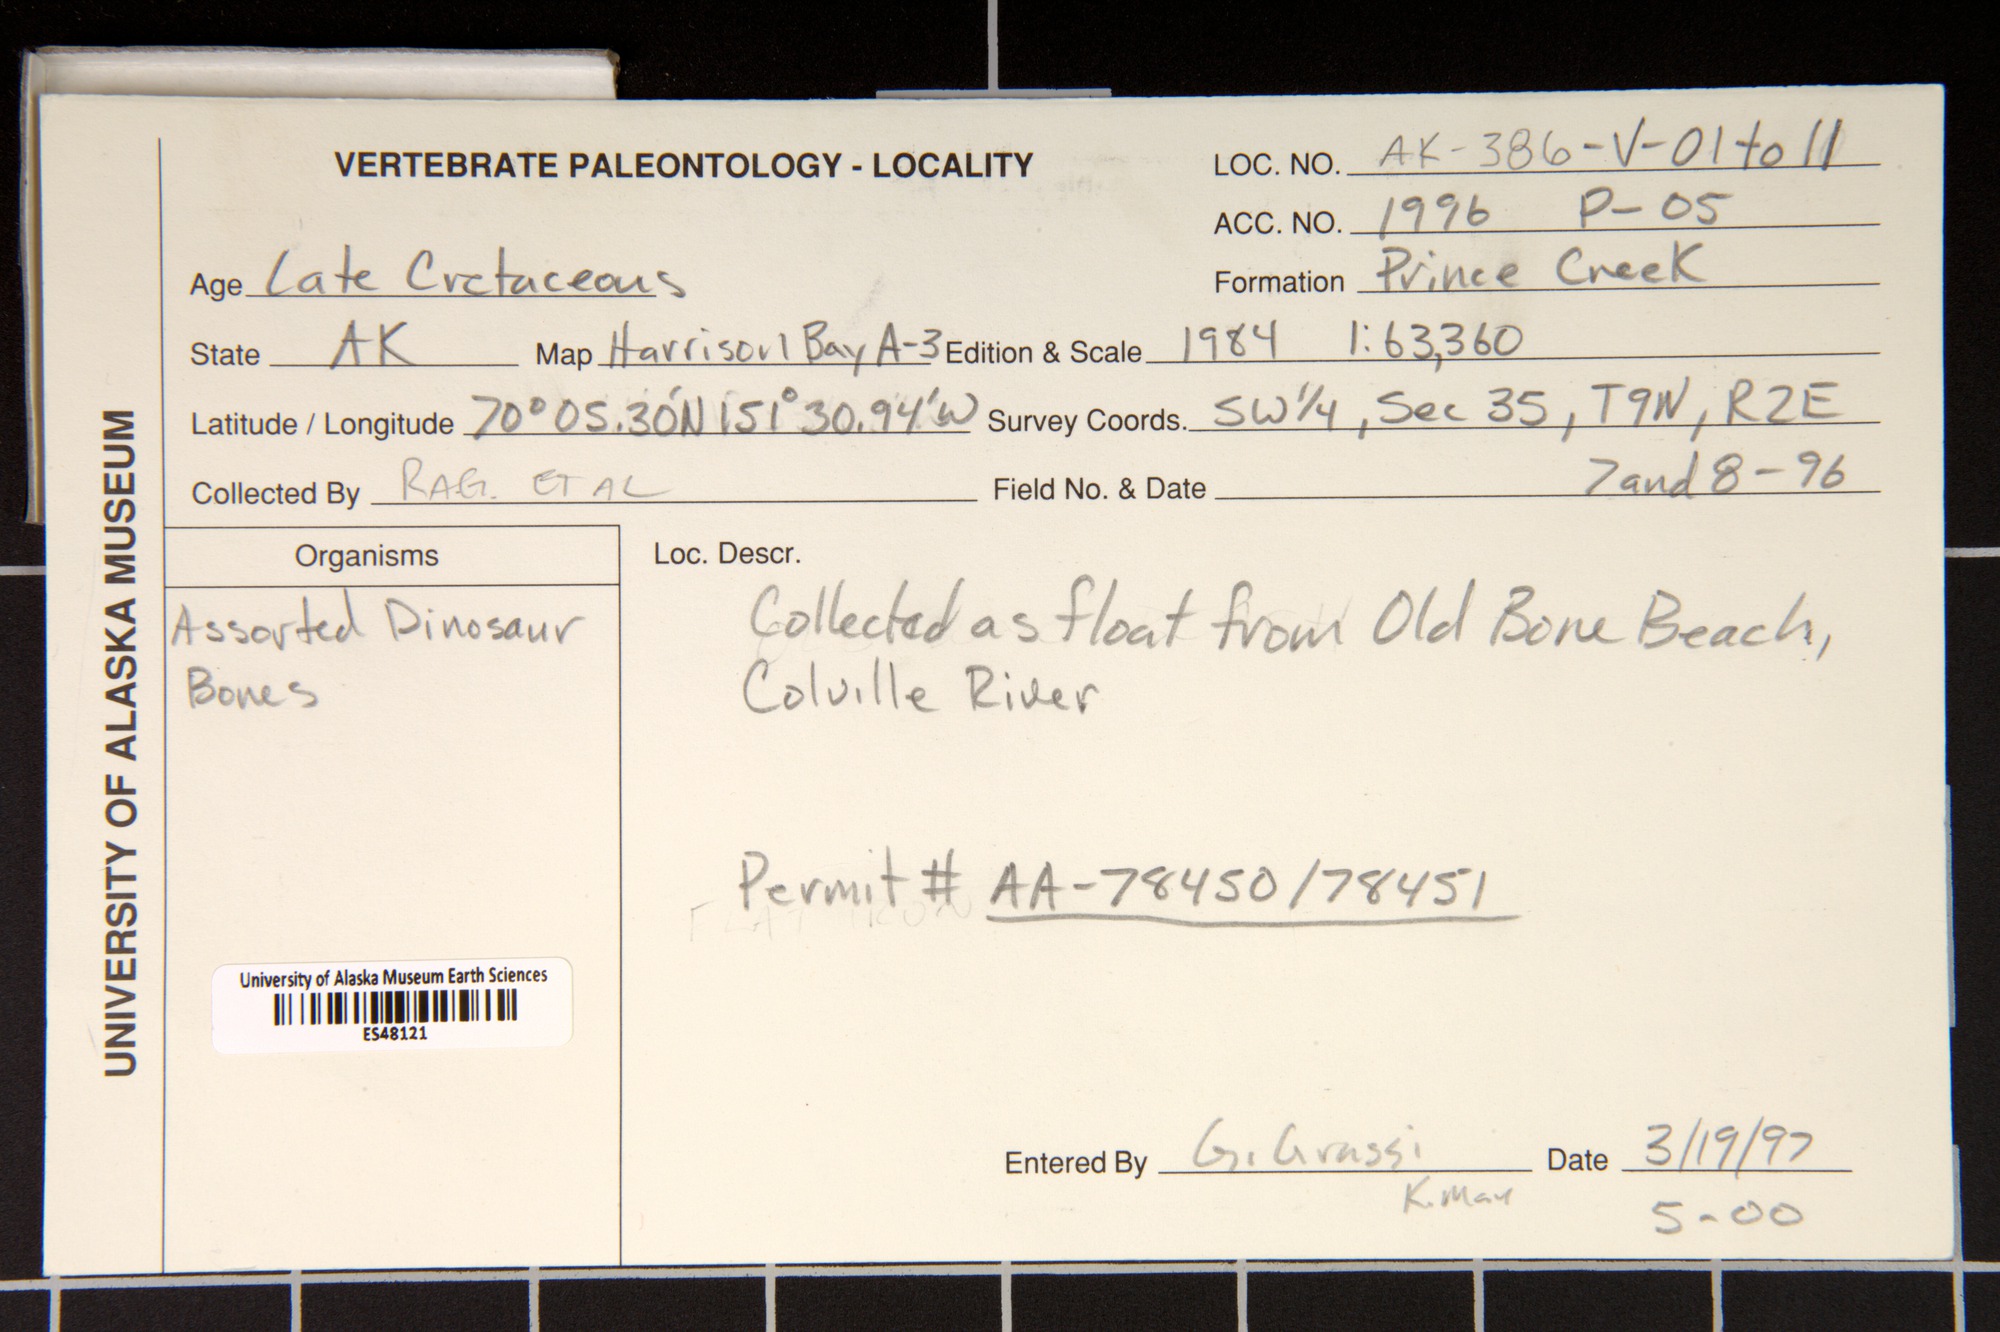 VERTEBRATE PALEONTOLOGY - LOCALITY
LOC. NO. AK-386-V-01 to 11
ACC. NO. 1996 P-05
Age Late Cretaceous
Formation Prince Creek
State AK Map Harrison Bay A-3 Edition & Scale 1984 1:63,360
Latitude / Longitude 70° 05.30'N 151° 30.94'W Survey Coords. SW 1/4, Sec 35, T9N, R2E
Collected By RAG. ET AL Field No. & Date 7 and 8-96
UNIVERSITY OF ALASKA MUSEUM
Organisms
Assorted Dinosaur
Bones
Loc. Descr.
Collected as float from Old Bone Beach,
Colville River
Permit # AA-78450/78451
University of Alaska Museum Earth Sciences
ES48121
Entered By G. Grassi Date 3/19/97
K. May 5-00